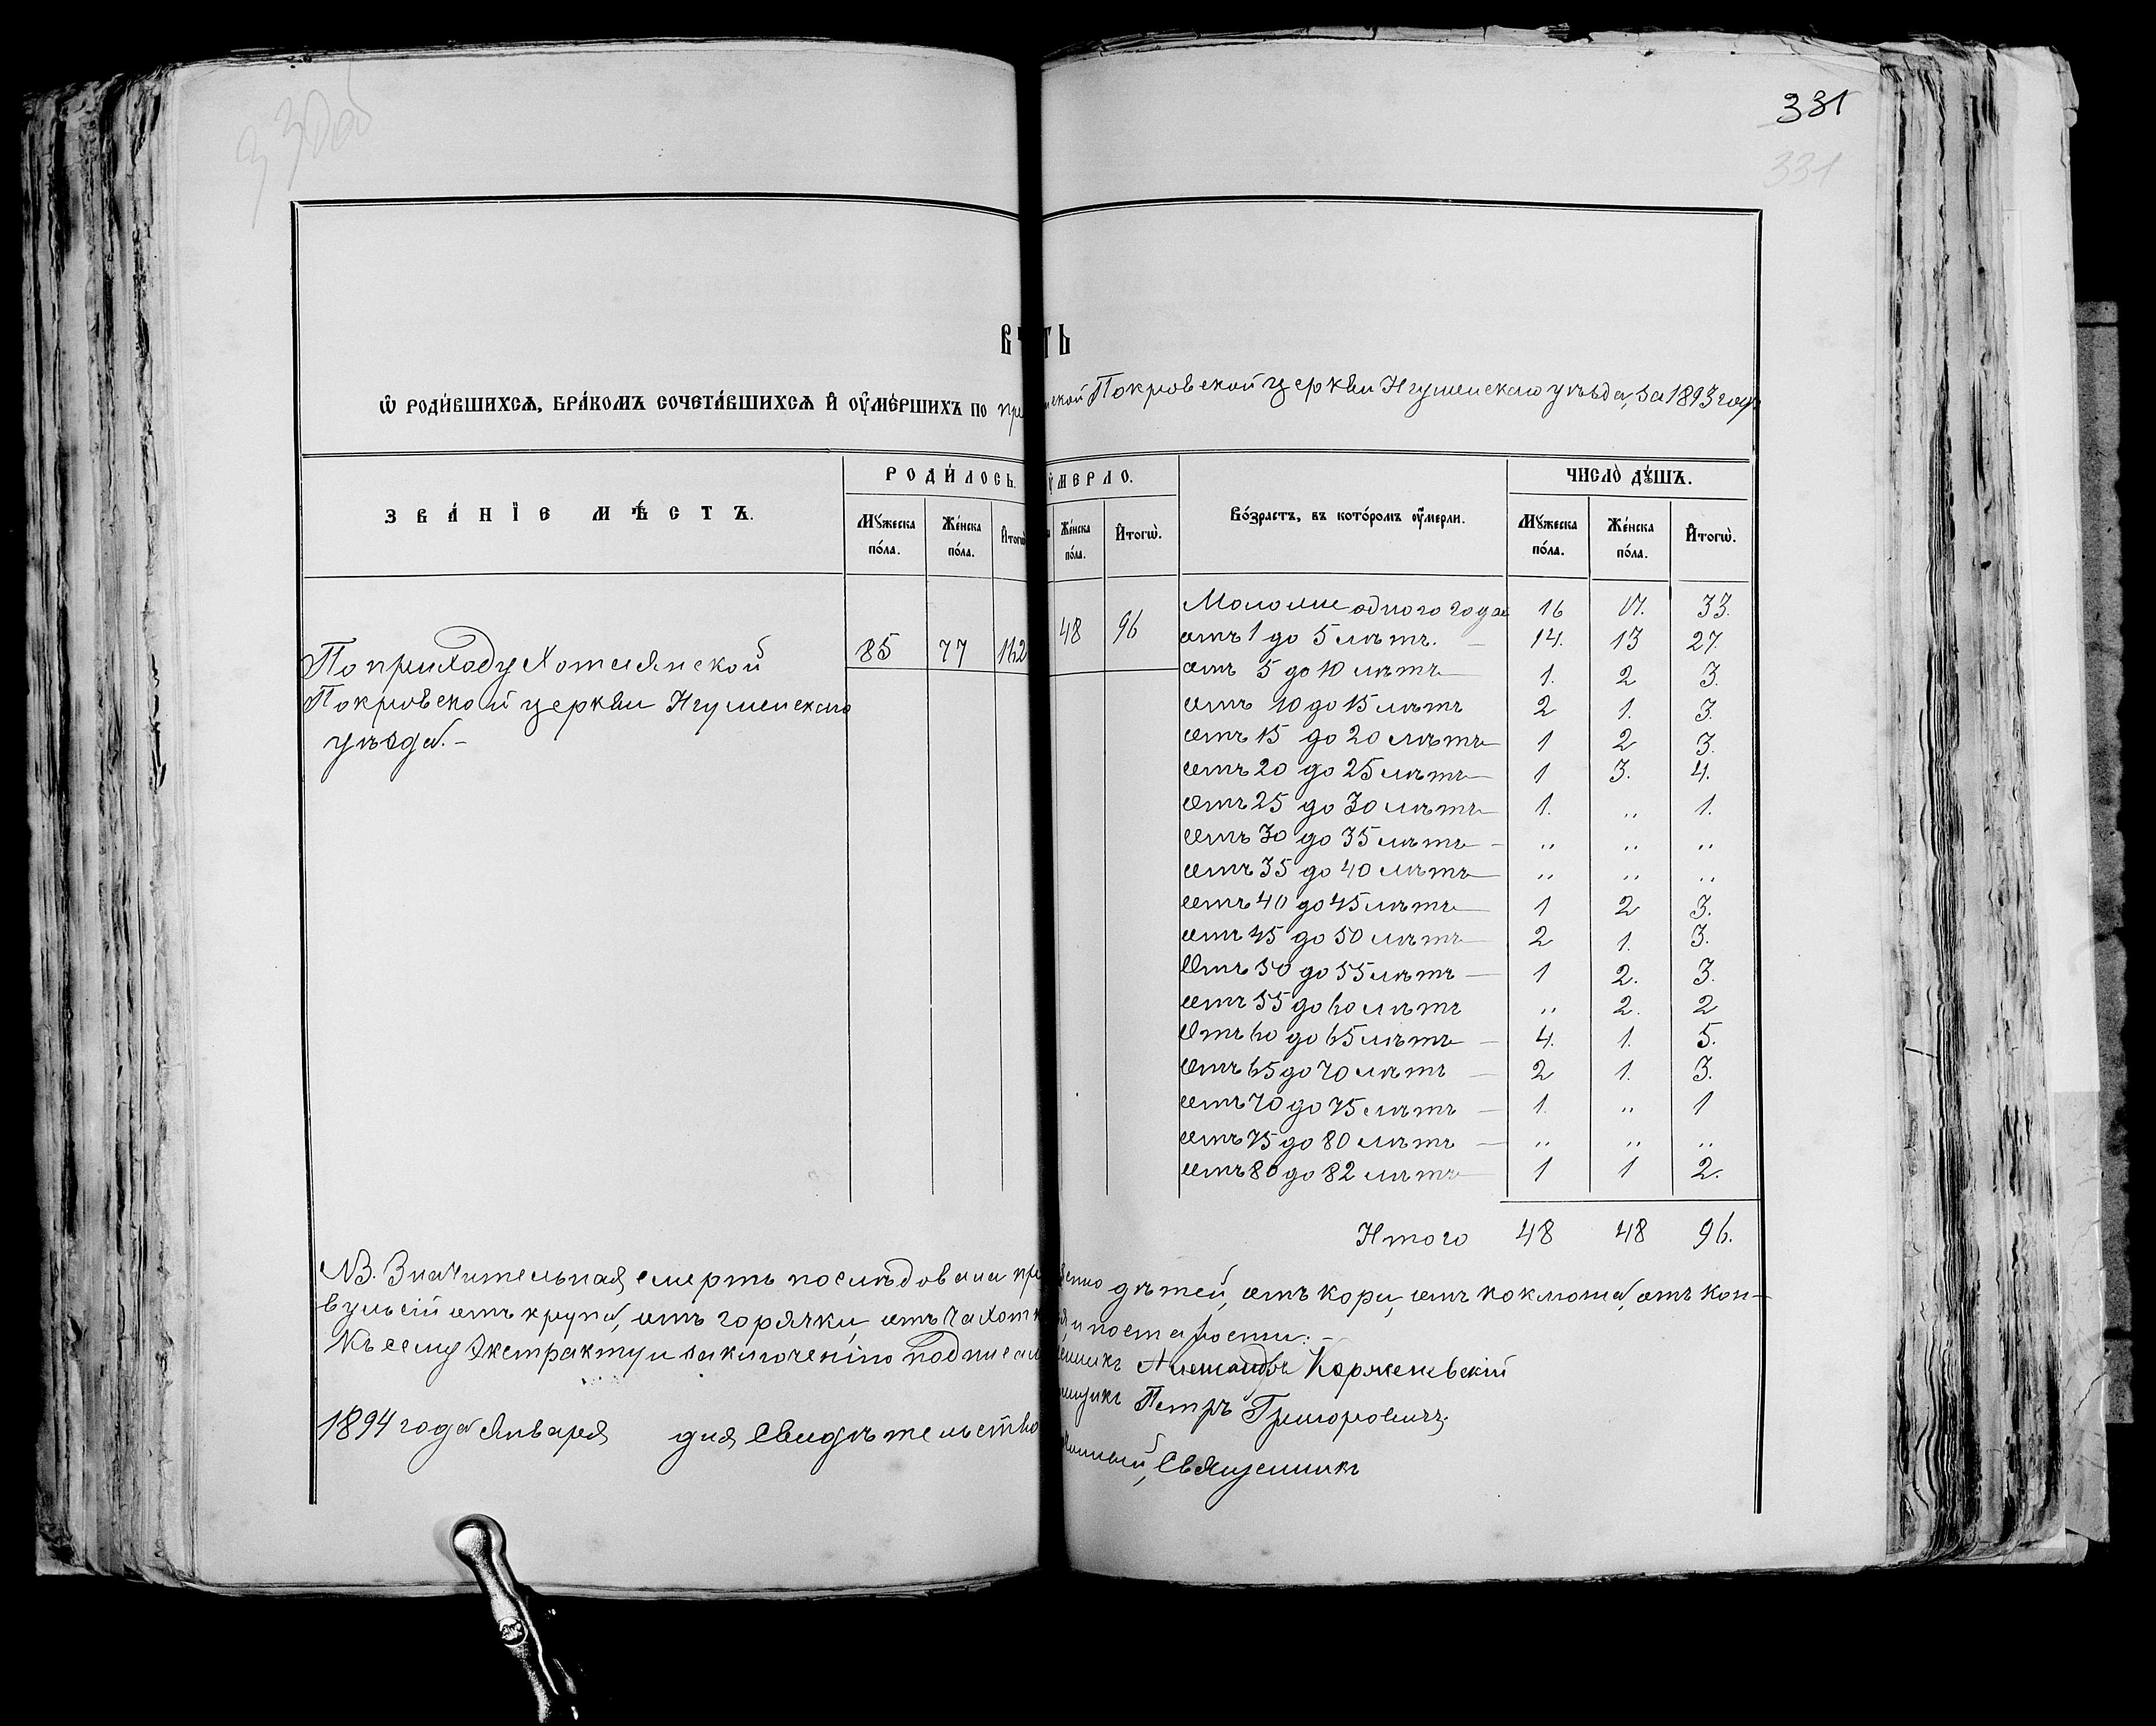 330об
331
331
Ѡ РОДИ́ВШИХСѦ, БРА́КОМЪ СОЧЕТА́ВШИХСѦ И҆ ОУ҆МЕ́РШИХЪ ПО
ской Покровской церкви Игуменскаго уѣзда, за 1893 годъ
ЗВА́НЇЕ МѢ́СТЪ.
РОДИ́ЛОСЬ.
МꙊжеска по́ла.
Же́нска по́ла.
И҆тогѡ̀
УМЕРЛО.
Же́нска по́ла.
И҆тогѡ̀.
Во́зрастъ, въ кото́ромъ оу҆мерли.
ЧИСЛО̀ ДꙊ́ШЪ.
МꙊжеска по́ла.
Же́нска по́ла.
И҆тогѡ̀.
По приходу Хотлянской
Покровской церкви Игуменскаго
уѣзда. –
85 77 162 48 96
Моложе одного года 16 17. 33.
отъ 1 до 5 лѣтъ. – 14. 13 27.
отъ 5 до 10 лѣтъ 1. 2 3.
отъ 10 до 15 лѣтъ 2 1. 3.
отъ 15 до 20 лѣтъ 1 2 3.
отъ 20 до 25 лѣтъ 1 3. 4.
отъ 25 до 30 лѣтъ 1. „ 1.
отъ 30 до 35 лѣтъ – „ „ „
отъ 35 до 40 лѣтъ „ „ „
отъ 40 до 45 лѣтъ 1 2 3.
отъ 45 до 50 лѣтъ 2 1. 3.
Отъ 50 до 55 лѣтъ – 1 2. 3.
отъ 55 до 60 лѣтъ „ 2. 2
Отъ 60 до 65 лѣтъ – 4. 1. 5.
отъ 65 до 70 лѣтъ – 2 1. 3.
отъ 70 до 75 лѣтъ – 1. „ 1
отъ 75 до 80 лѣтъ – „ „ „
отъ 80 до 82 лѣтъ 1 1 2.
Итого 48 48 96.
NB. Значительная смерть послѣдовала дѣтей, отъ кори, отъ коклюша, отъ кон-
вульсій отъ крупа, отъ горячки, отъ чахотки и по старости. –
Къ сему экстракту и заключенію подписал Александръ Коржелевскій
Петръ Григоровичъ
1894 года Января дня Свидѣтельство
Священникъ